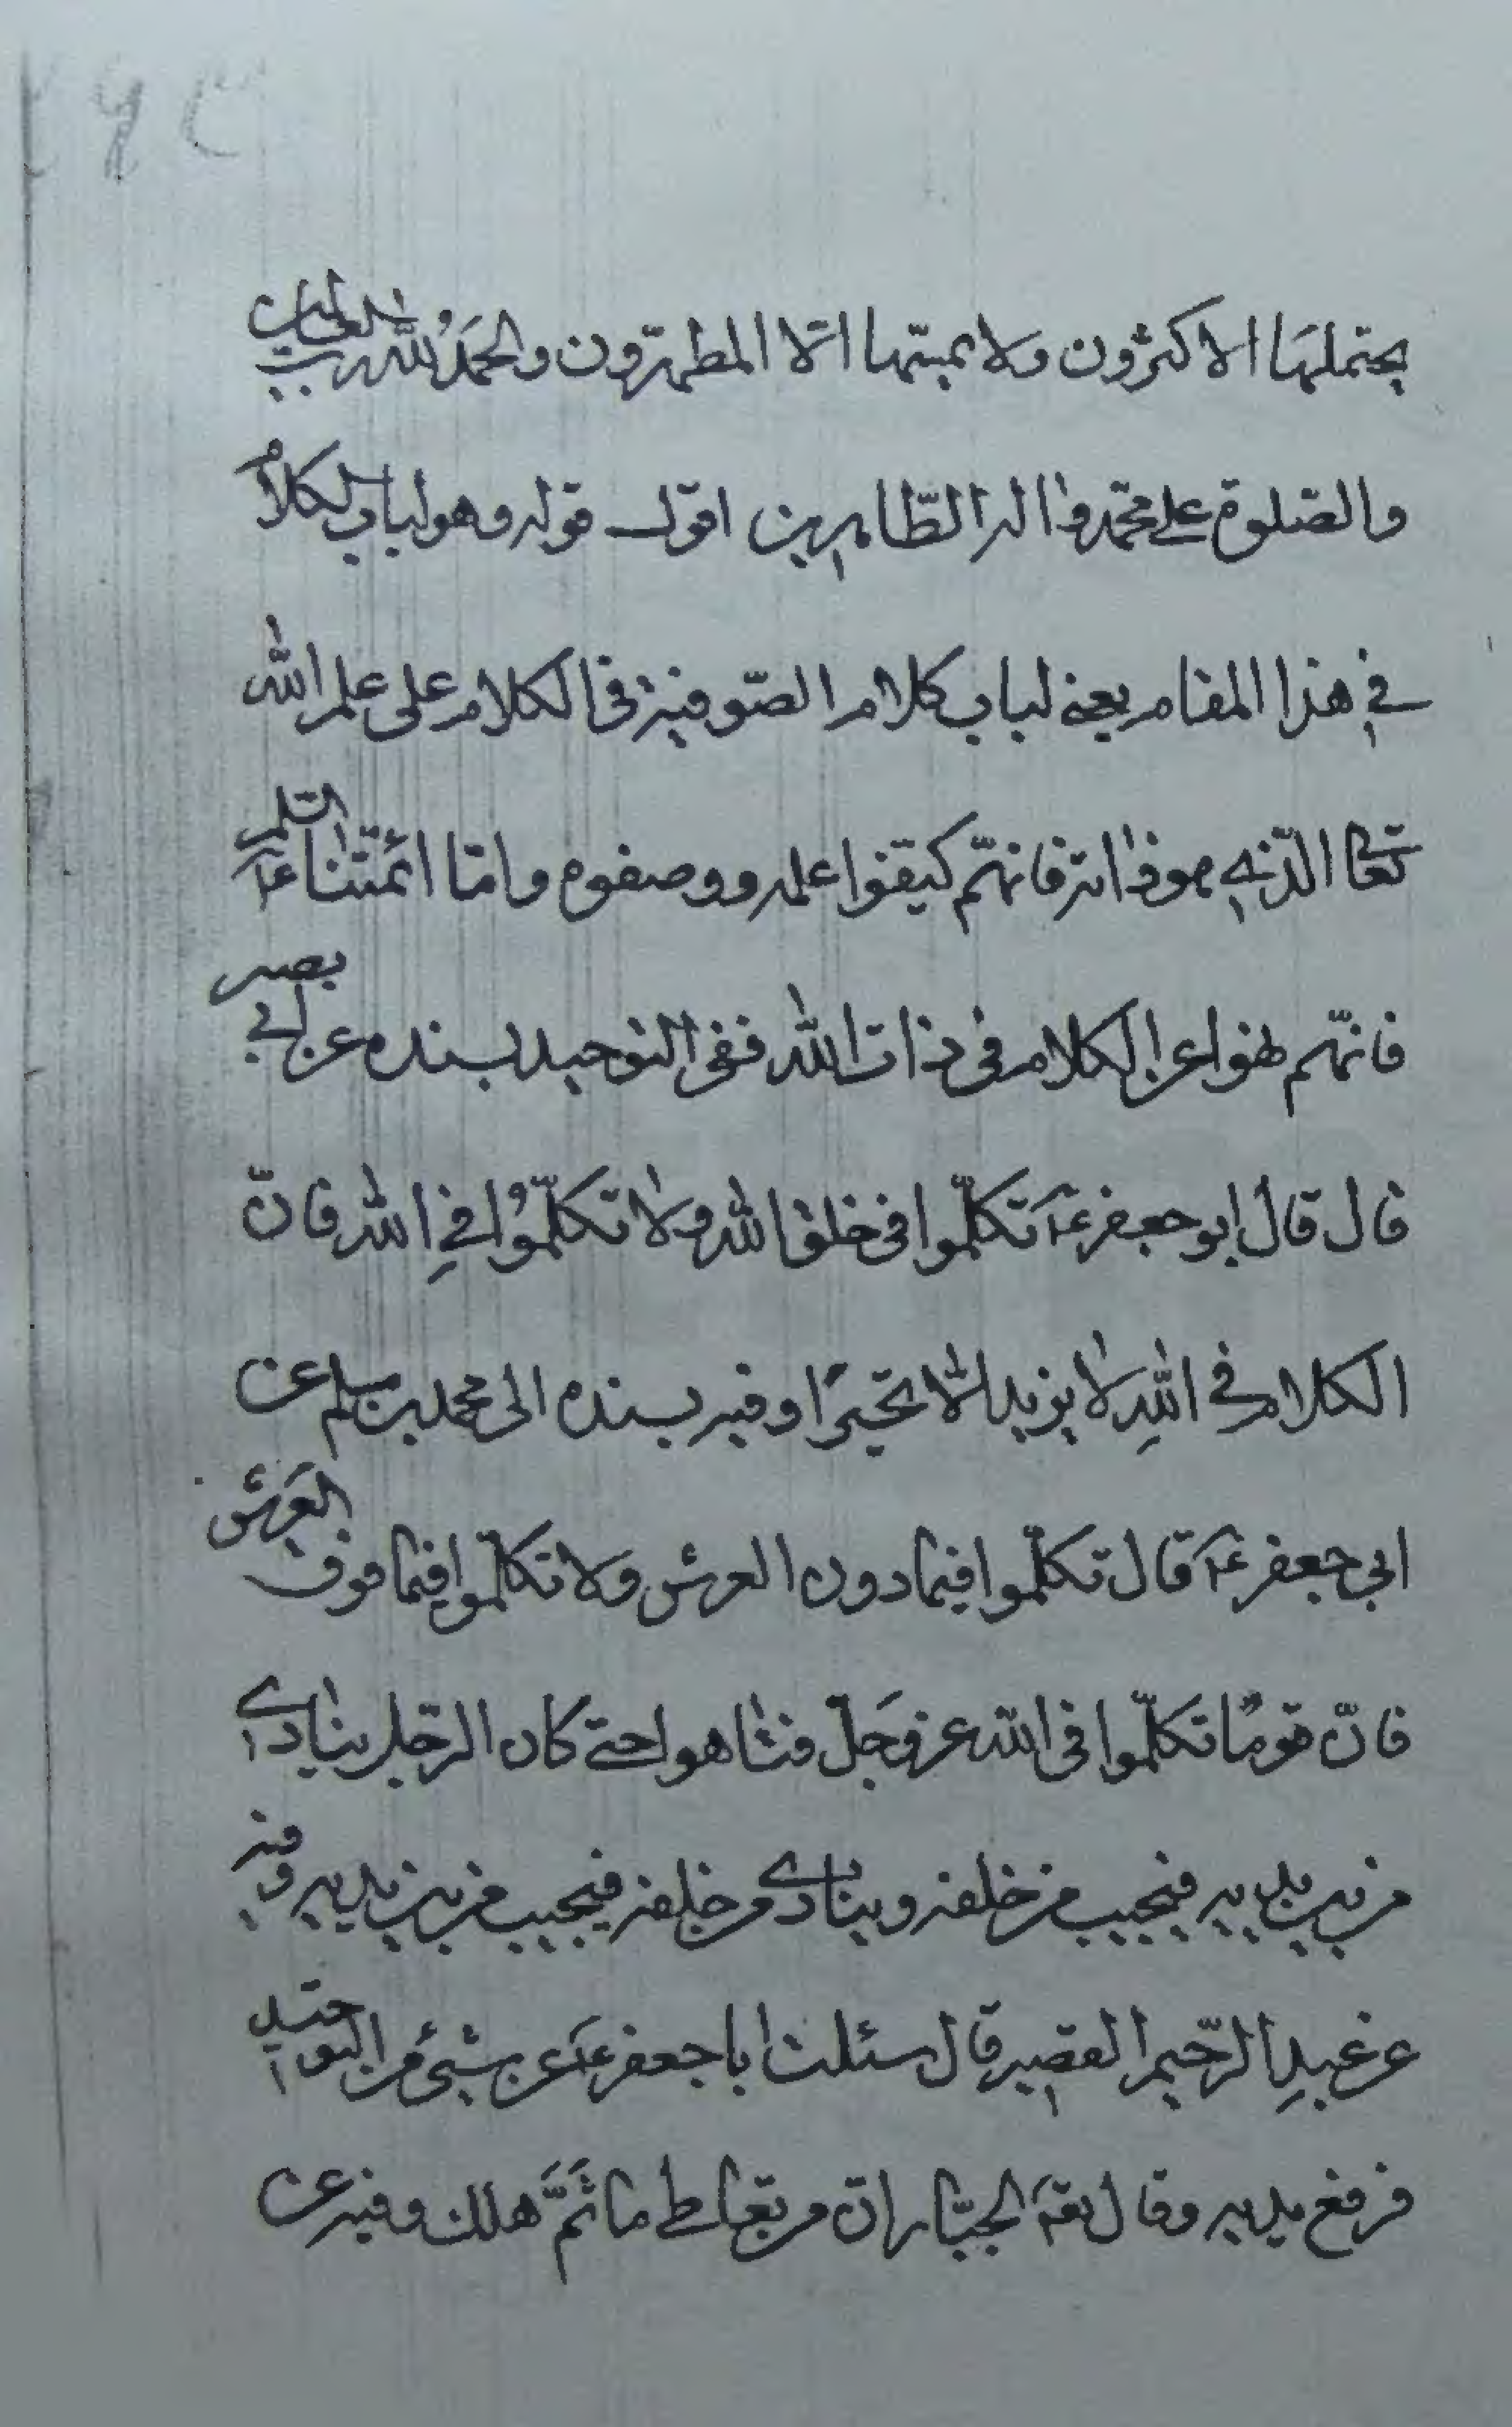 يحتملها الاكثرون ولا يمسّها الّا المطهّرون والحمَدُ لله رب العالمين
والصّلوة على محمّد واله الطّاهرين اقول قوله وهو لباب الكلام
في هذا المقام يعني لباب كلام الصّوفية في الكلام على علم الله
تعالى الّذي هو ذاته فانهّم كيّفوا علمه ووصفوه وامّا ائمّتنا عليهم السّلم
فانهّم نهوا عن الكلام في ذات الله ففي التوحيد بسنده عن ابي بصير
قال قال ابو جعفر عۤ تكلّموا في خلق الله ولا تكلّموُا فيِ الله فانّ
الكلام في اللهِ لا يزيد الّا تحيّرًا وفيه بسنده الى محمد بن مسلم عن
ابي جعفر عۤ قال تكلّموا فيما دون العرش ولا تكلّموا فيما فوق العَرش
فانّ قومًا تكلّموا في الله عز وجَلّ فتاهوا حتى كان الرّجل ينادي
من بين يديه فيجيب من خلفه وينادي من خلفه فيجيب من بين يديه وفيه
عن عبدِ الرّحيم القصير قال سئلت ابا جعفر عۤ عن شيئ من التوحيد
فرفع يديه وقال تعۤ الجبّار انّ من تعاطى ما ثَمَّ هلك وفيه عن